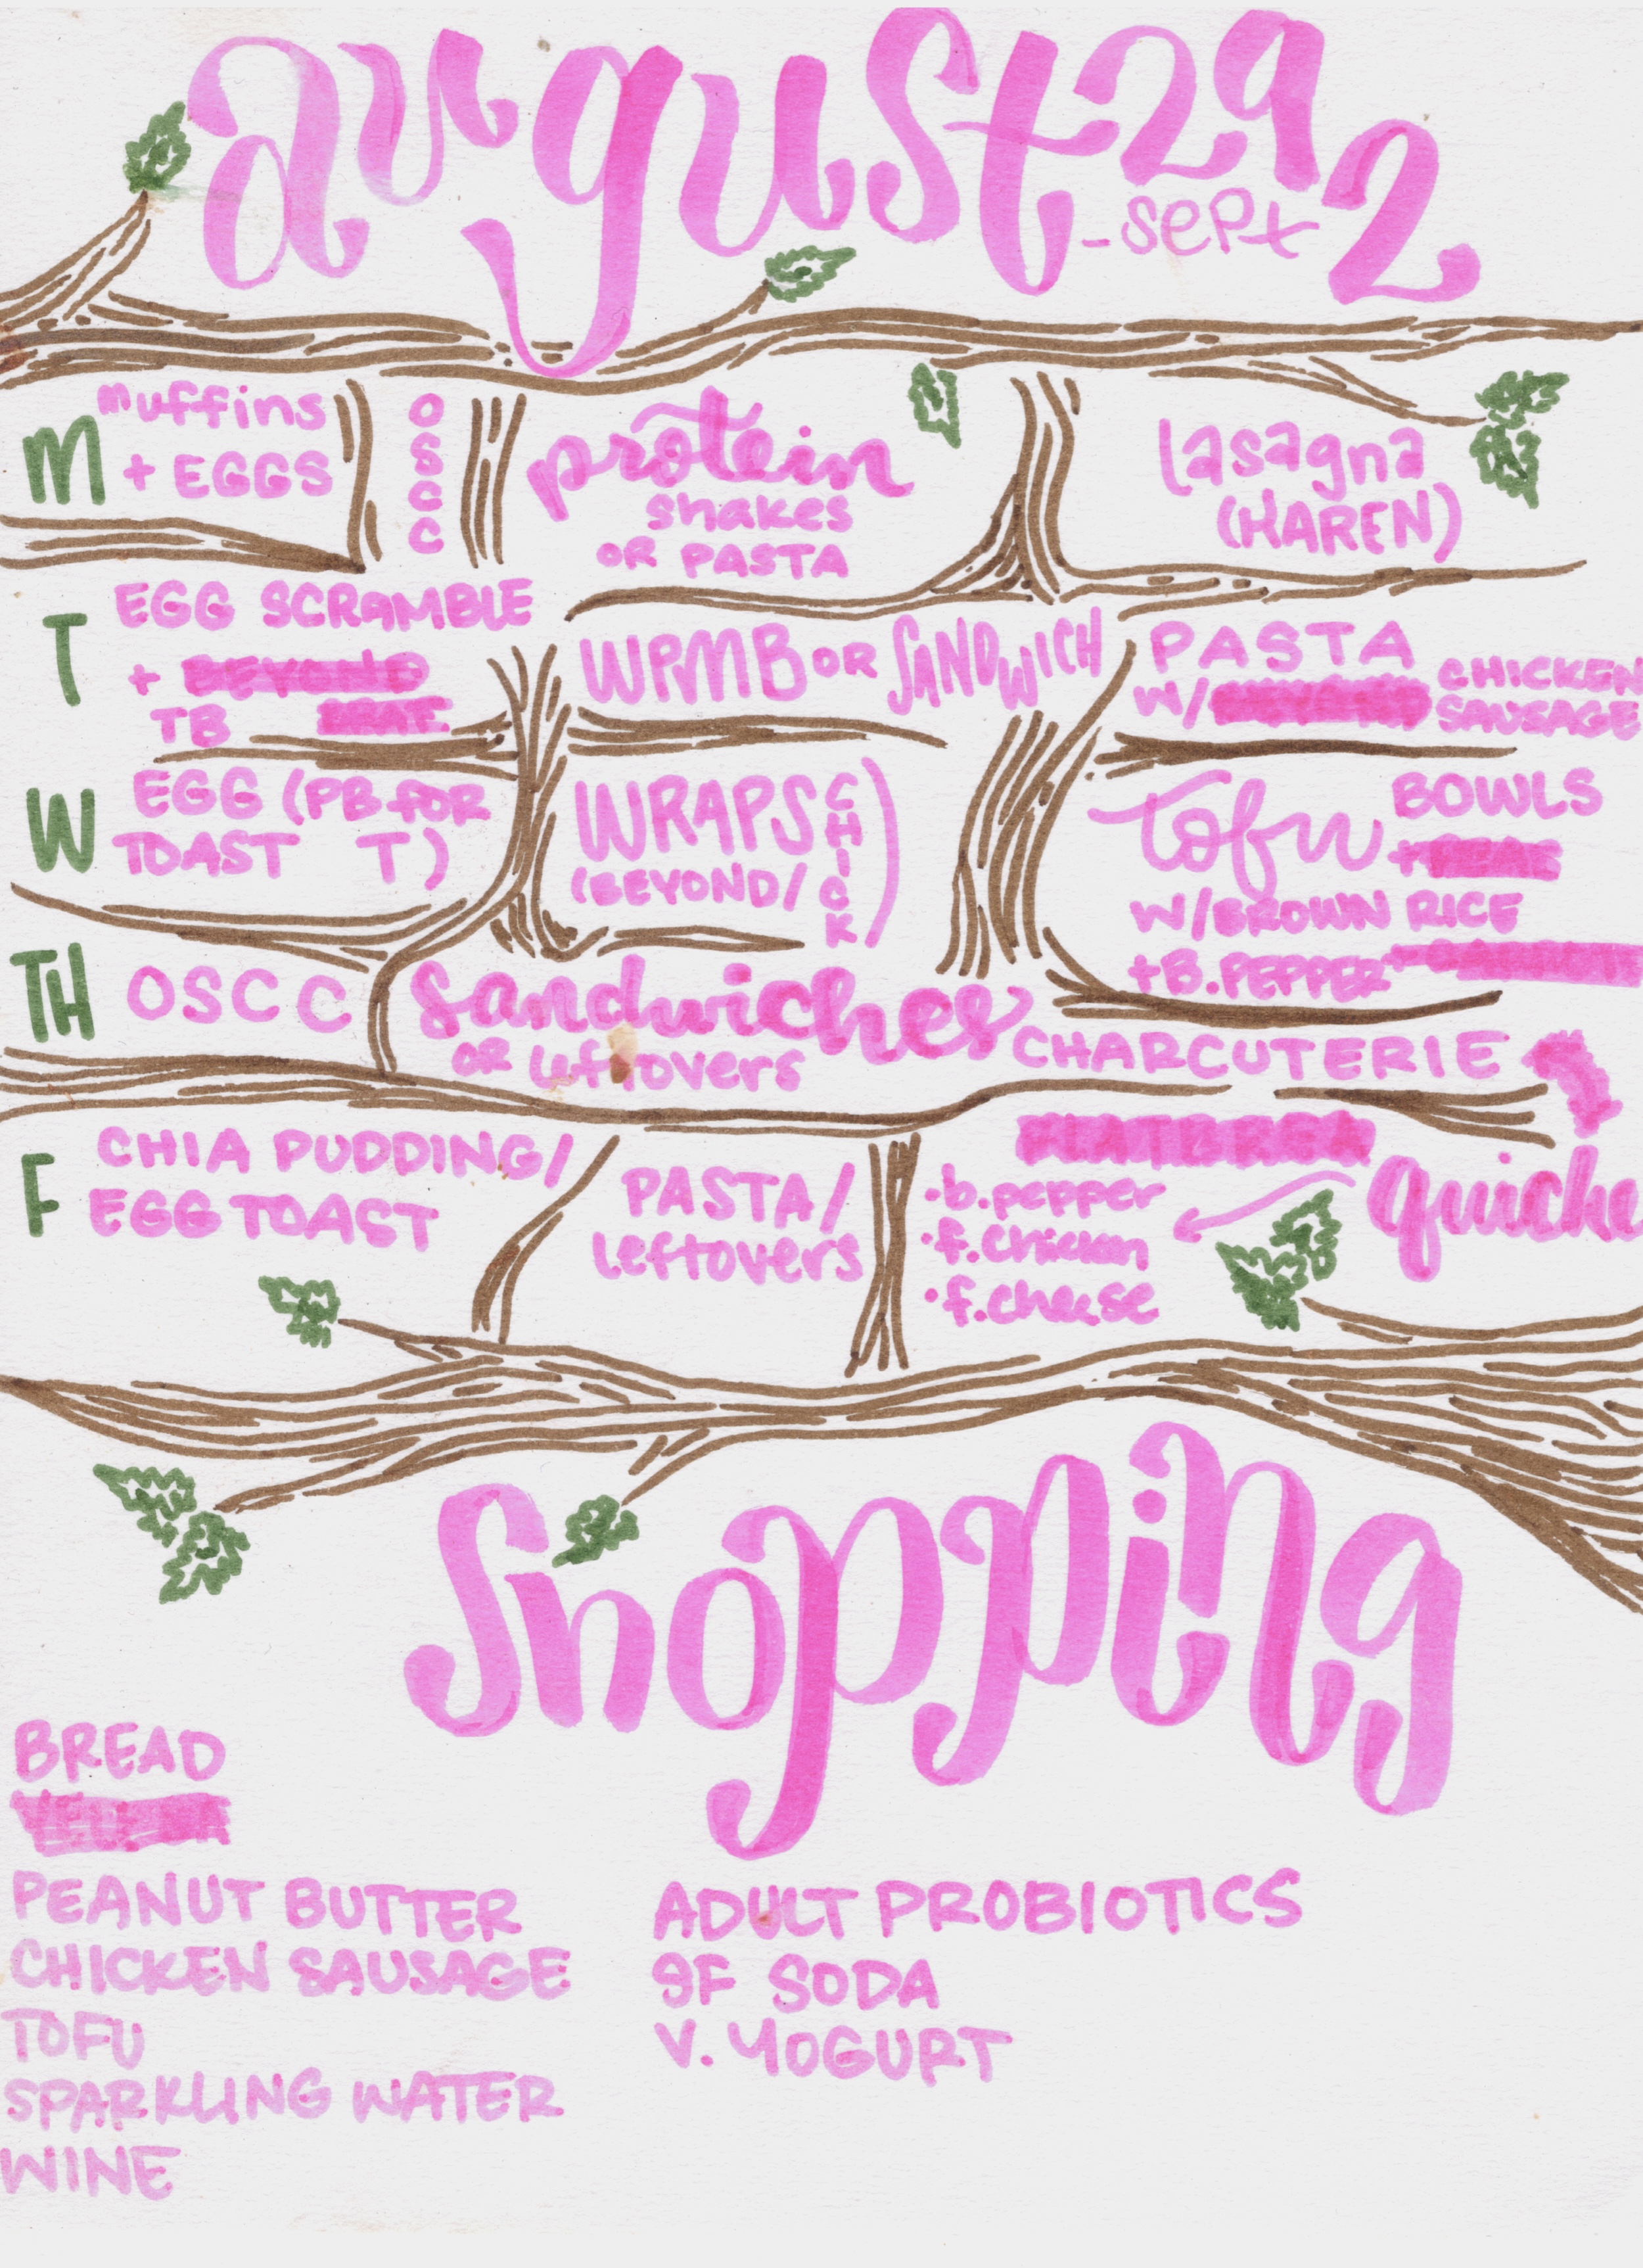 august 29
- sept 2
M
muffins
+ EGGS
OSCC
protein
shakes
OR PASTA
lasagna
(KAREN)
T
EGG SCRAMBLE
+ BEYOND
TB
WPMB OR SANDWICH
PASTA
W/
CHICKEN
SAUSAGE
W
EGG (PB FOR
TOAST T)
WRAPS
(BEYOND/
CHICK)
tofu BOWLS
+
W/BROWN RICE
+B.PEPPER
TH
OSCC
sandwiches
OR leftovers
CHARCUTERIE
F
CHIA PUDDING/
EGG TOAST
PASTA/
leftovers
FLATBREA
quiche
·b.pepper
·f.chicken
·f.cheese
Shopping
BREAD
PEANUT BUTTER
CHICKEN SAUSAGE
TOFU
SPARKLING WATER
WINE
ADULT PROBIOTICS
GF SODA
V. YOGURT